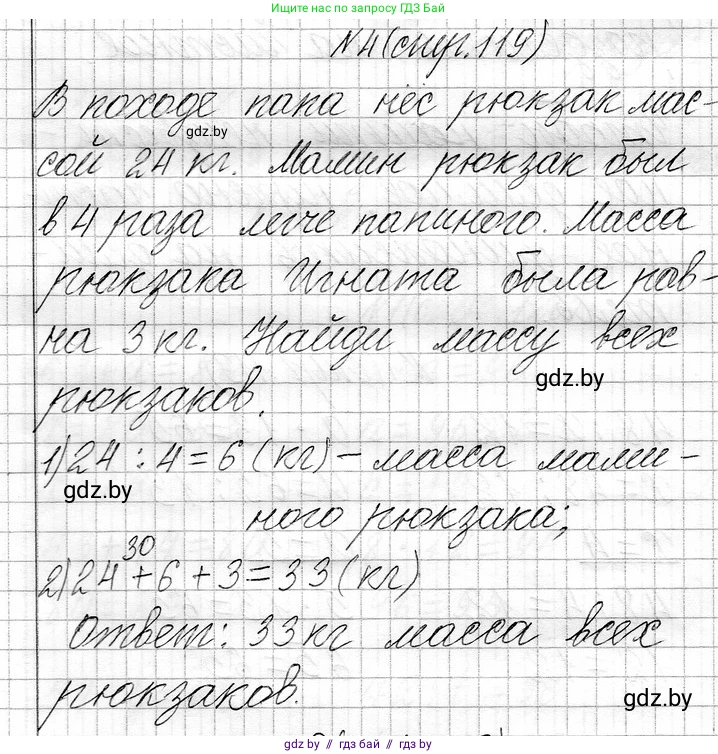 Ищите нас по запросу ГДЗ Бай
№4 (стр. 119)
В походе папа нёс рюкзак мас-
gdz.by
сой 24 кг. Мамин рюкзак был
в 4 раза легче папиного. Масса
рюкзака Игната была рав-
на 3 кг. Найди массу всех
gdz.by
рюкзаков.
1) 24 : 4 = 6 (кг) – масса мами-
gdz.by
ного рюкзака;
30
2) 24 + 6 + 3 = 33 (кг)
Ответ: 33 кг масса всех
рюкзаков.
gdz.by
gdz.by // гдз бай // gdz.by